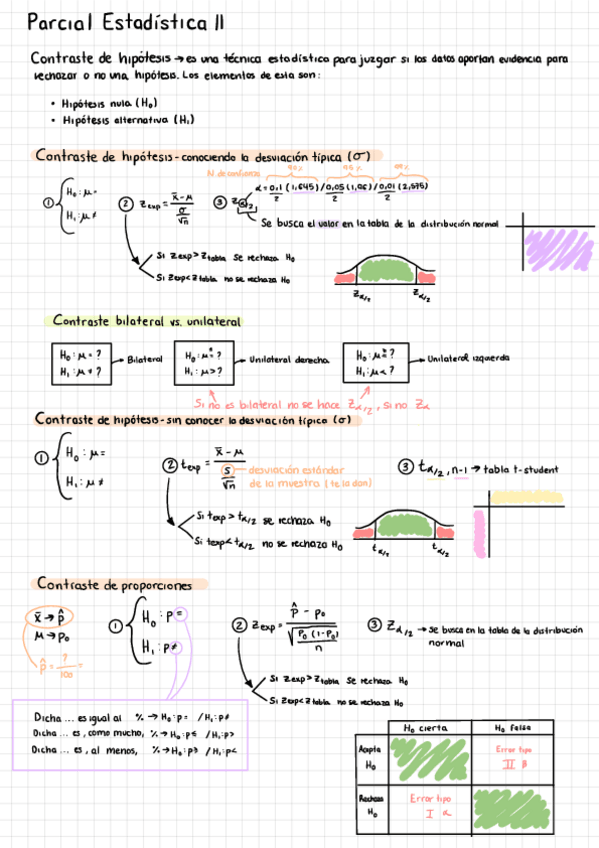 Parcial Estadística II
Contraste de hipótesis → es una técnica estadística para juzgar si los datos aportan evidencia para
rechazar o no una hipótesis. Los elementos de esta son:
• Hipótesis nula (H₀)
• Hipótesis alternativa (H₁)
Contraste de hipótesis - conociendo la desviación típica (σ)
N de confianza 90% 95% 99%
① H₀: μ= ② Z exp = x̄ - μ / σ/√n ③ Z α/2 α = 0,1/2 (1,645) / 0,05/2 (1,96) / 0,01/2 (2,575)
H₁: μ≠
Se busca el valor en la tabla de la distribución normal
Si Zexp > Ztabla se rechaza H₀
Si Zexp < Ztabla no se rechaza H₀
Zα/2 Zα/2
Contraste bilateral vs. unilateral
H₀: μ = ? → Bilateral
H₁: μ ≠ ?
H₀: μ ≤ ? → Unilateral derecha
H₁: μ > ?
H₀: μ ≥ ? → Unilateral izquierda
H₁: μ < ?
Si no es bilateral no se hace Zα/2, si no Zα
Contraste de hipótesis - sin conocer la desviación típica (σ)
① H₀: μ= ② t exp = x̄ - μ / s/√n ③ tα/2, n-1 → tabla t-student
H₁: μ≠
desviación estándar
de la muestra (te lo dan)
Si texp > tα/2 se rechaza H₀
Si texp < tα/2 no se rechaza H₀
tα/2 tα/2
Contraste de proporciones
x̄ → p̂
μ → p₀
p̂ = ?/100 =
① H₀: p= ② Z exp = p̂ - p₀ / √p₀(1-p₀)/n ③ Zα/2 → se busca en la tabla de la distribución
normal
H₁: p≠
Si Zexp > Ztabla se rechaza H₀
Si Zexp < Ztabla no se rechaza H₀
Dicha ... es igual al % → H₀: p= / H₁: p≠
Dicha ... es, como mucho, % → H₀: p≤ / H₁: p>
Dicha ... es, al menos, % → H₀: p≥ / H₁: p<
H₀ cierta H₀ falsa
Acepta
H₀
Error tipo
II β
Rechaza
H₀
Error tipo
I α